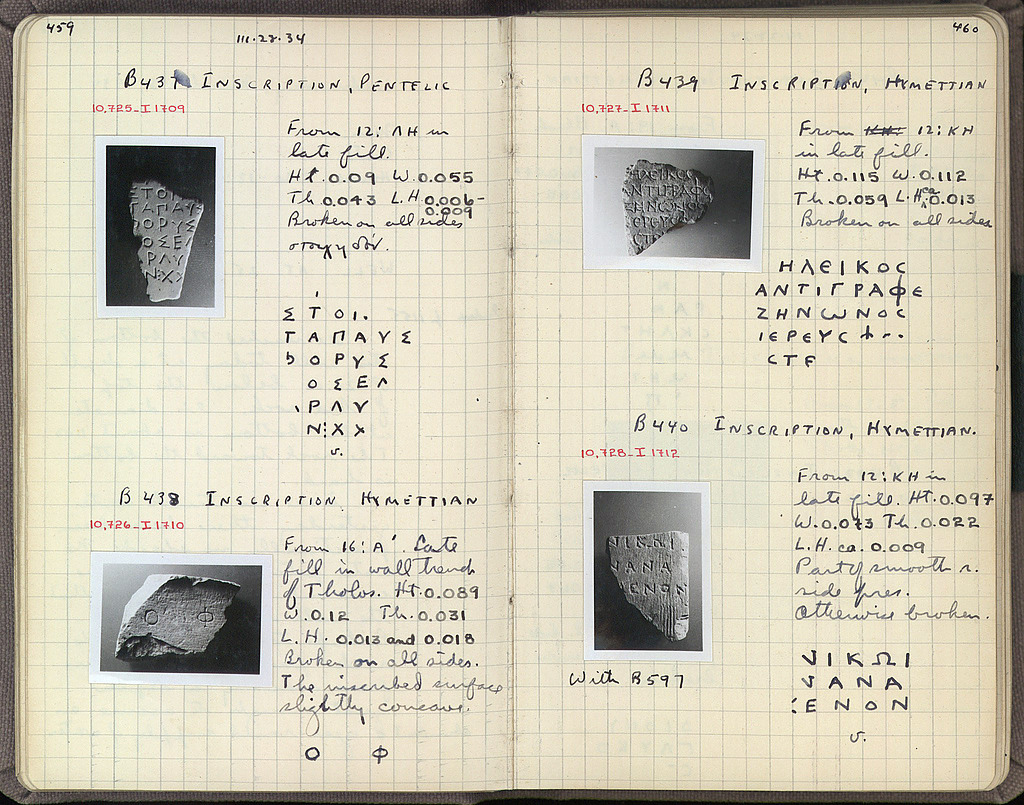 459
III·22·34
B437 INSCRIPTION, PENTELIC
10,725-I 1709
From 12: ΛH in
late fill.
Ht. 0.09 W. 0.055
Th 0.043 L.H. 0.006-
0.009
Broken on all sides
στοιχηδόν.
Σ Τ Ο Ι .
Τ Α Π Α Υ Σ
Ο Ρ Υ Σ
Ο Σ Ε Λ
Ρ Λ Υ
Ν : Χ Χ
v.
B 438 INSCRIPTION HYMETTIAN
10,726-I 1710
From 16: A'. Late
fill in wall trench
of Tholos. Ht. 0.089
W. 0.12 Th. 0.031
L.H. 0.013 and 0.018
Broken on all sides.
The inscribed surface
slightly concave.
Ο Φ
460
B439 INSCRIPTION, HYMETTIAN
10,727-I 1711
From 12: KH
in late fill.
Ht. 0.115 W. 0.112
Th. 0.059 L.H. ca 0.013
Broken on all sides
Η Λ Ε Ι Κ Ο C
Α Ν Τ Ι Γ Ρ Α Φ Ε
Ζ Η Ν Ω Ν Ο C
Ι Ε Ρ Ε Υ C
C Τ Ε
B440 INSCRIPTION, HYMETTIAN.
10,728-I 1712
From 12: KH in
late fill. Ht. 0.097
W. 0.073 Th. 0.022
L.H. ca. 0.009
Part of smooth r.
side pres.
Otherwise broken.
With B597
Ν Ι Κ Ω Ι
Ν Α Ν Α
Ξ Ε Ν Ο Ν
v.